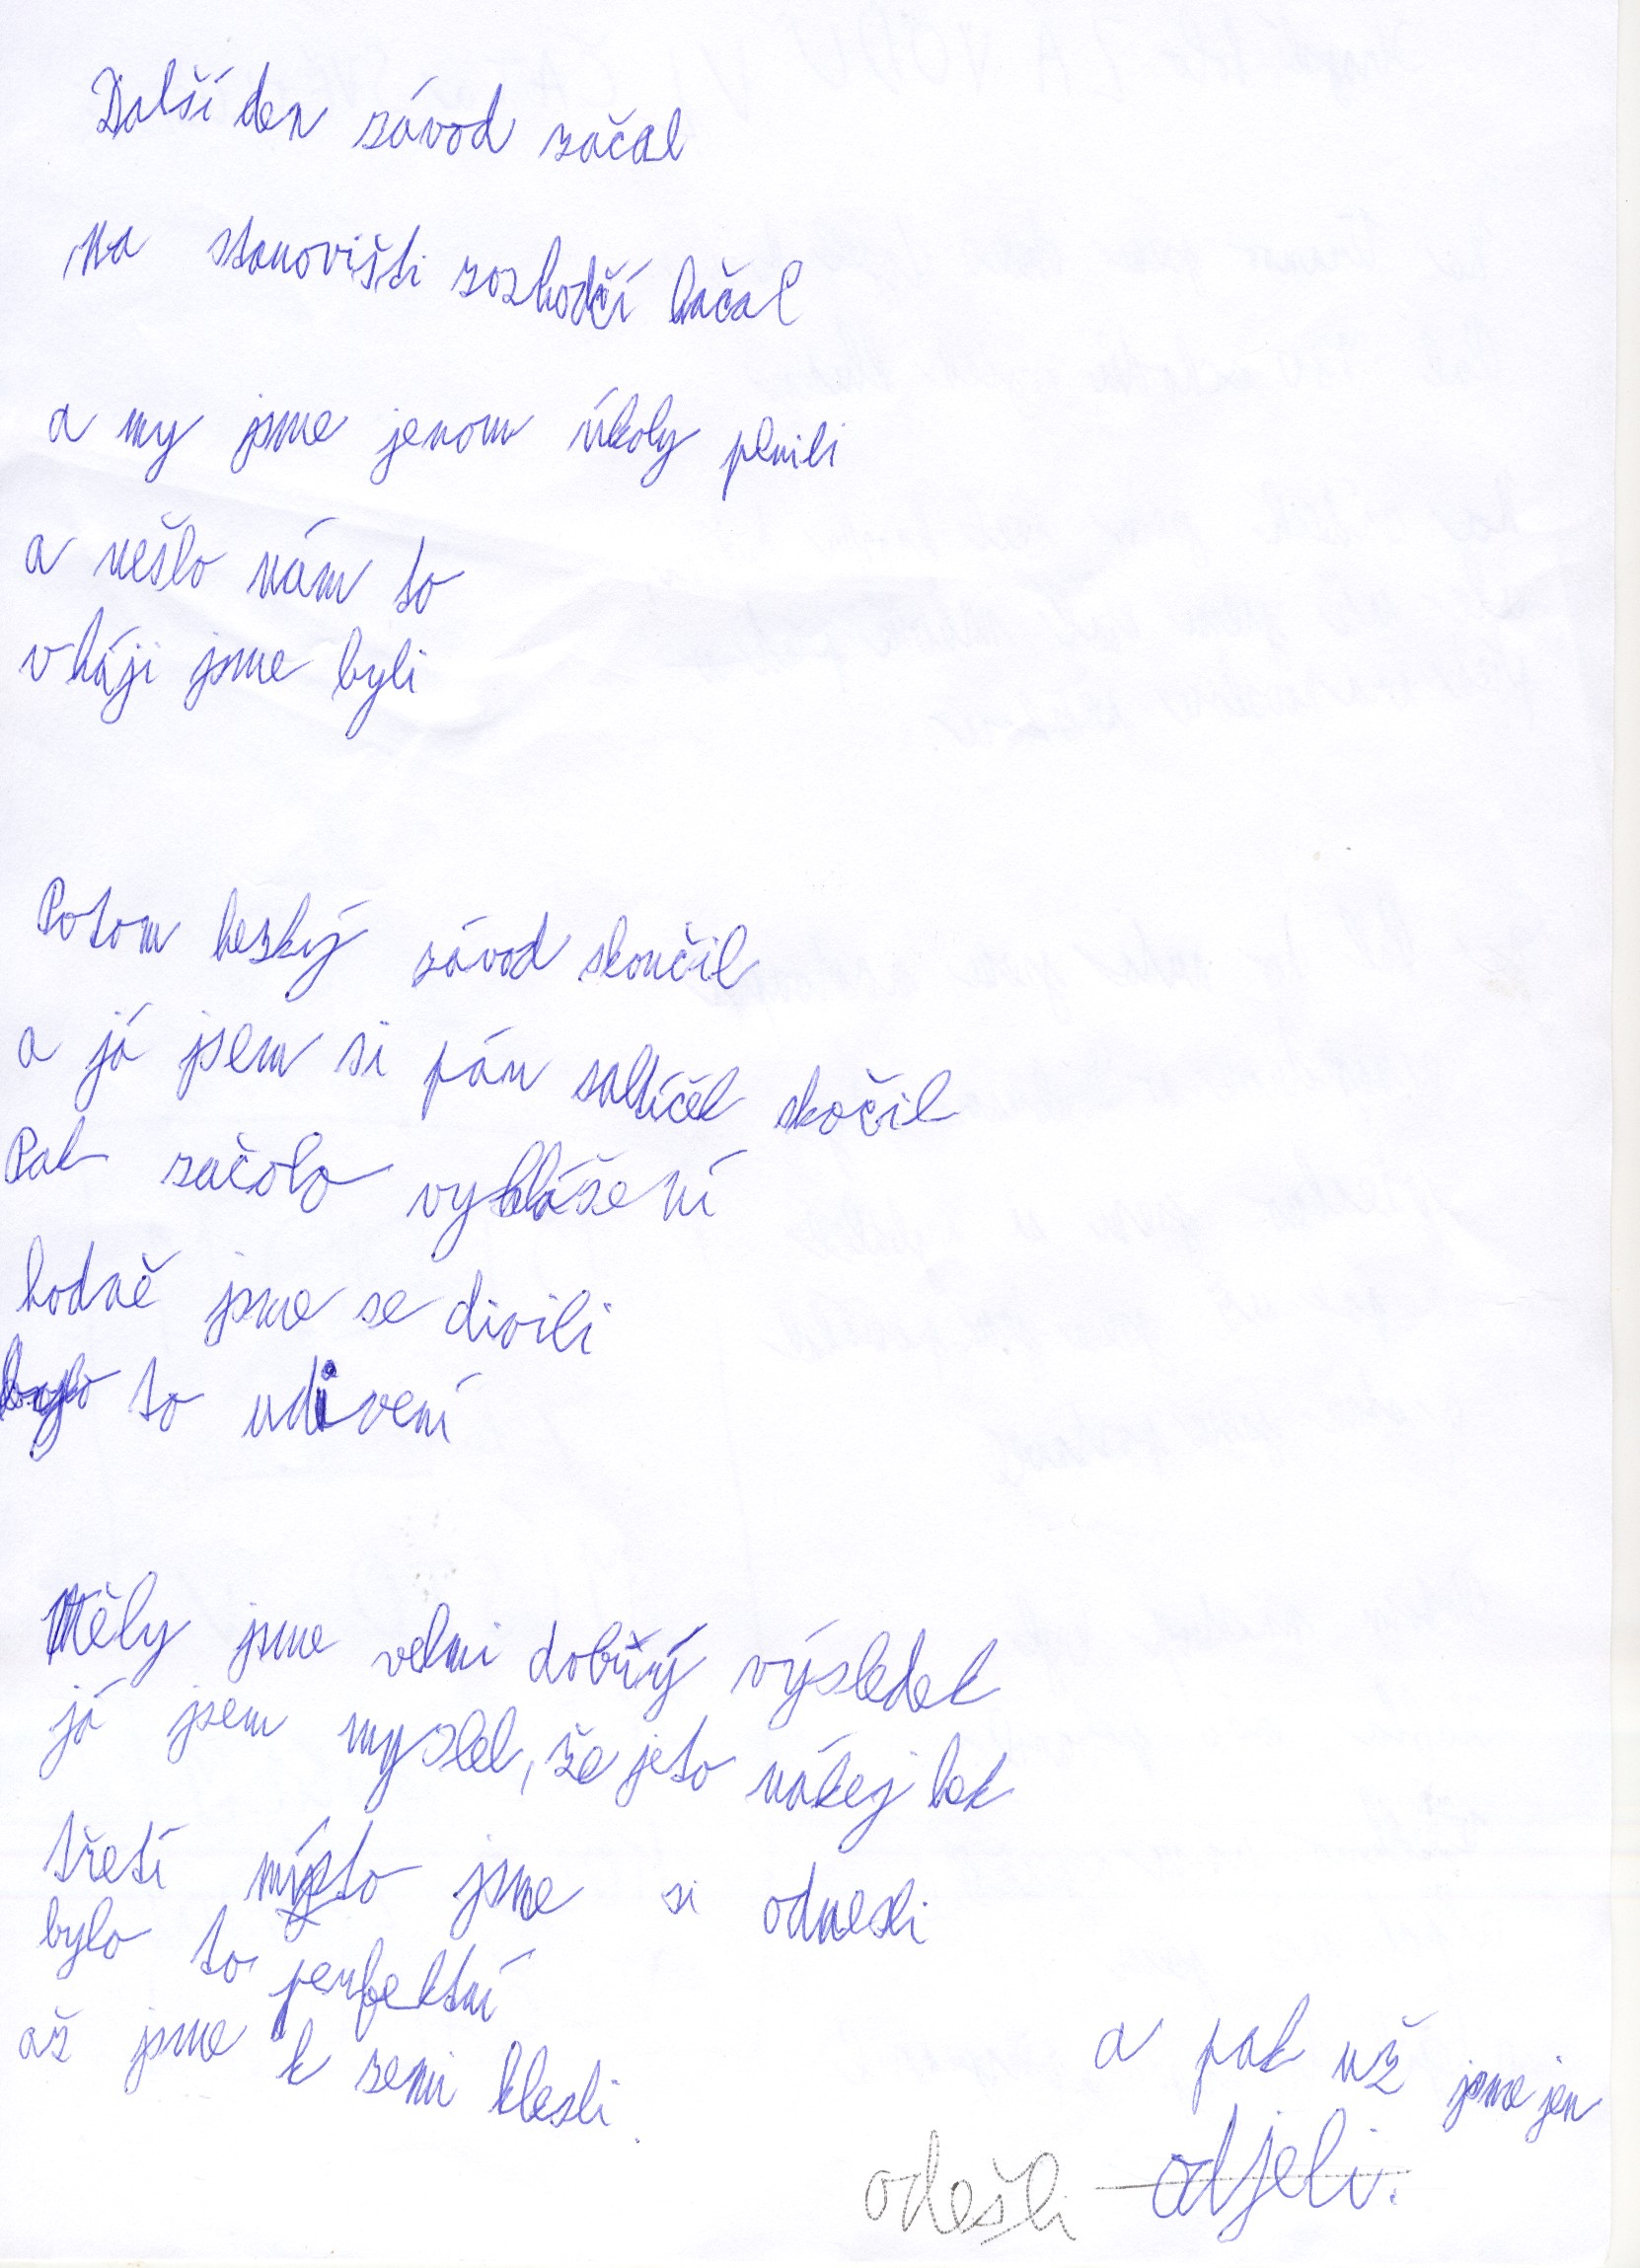 Další den závod začal
Na stanovišti rozhodčí kačal
a my jsme jenom úkoly plnili
a nešlo nám to
v háji jsme byli
Potom hezký závod skončil
a já jsem si pán saltíček skočil
Pak začalo vyhlášení
hodně jsme se divili
bylo to udivení
Měly jsme velmi dobrý výsledek
já jsem myslel, že je to nákej lek
třetí místo jsme si odnesli
bylo to perfektní
až jsme k zemi klesli.
a pak už jsme jen
odešli odjeli.